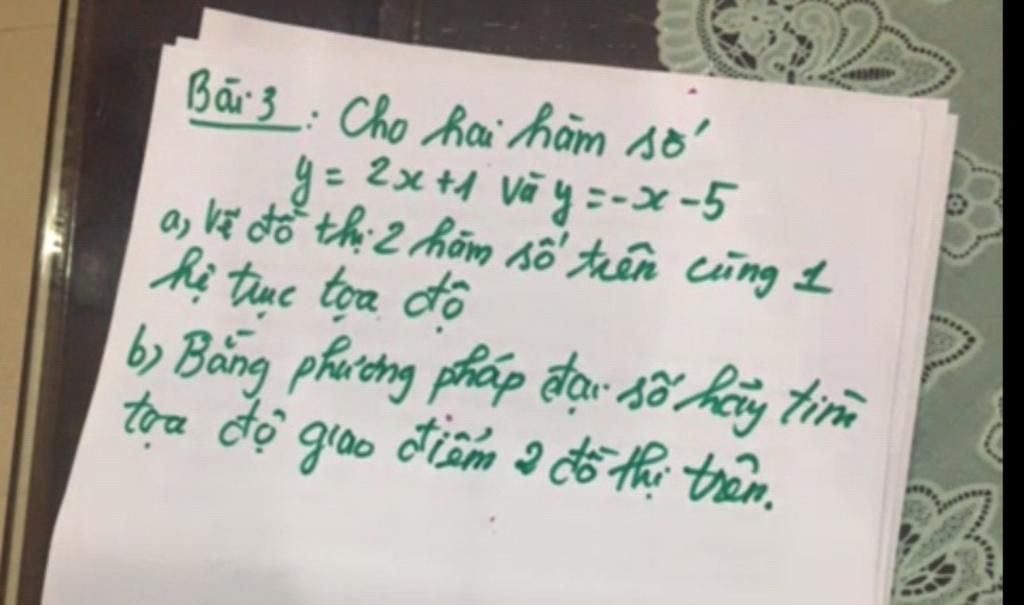 Bài 3 : Cho hai hàm số
y = 2x + 1 và y = -x - 5
a, Vẽ đồ thị 2 hàm số trên cùng 1
hệ trục tọa độ
b, Bằng phương pháp đại số hãy tìm
tọa độ giao điểm 2 đồ thị trên.